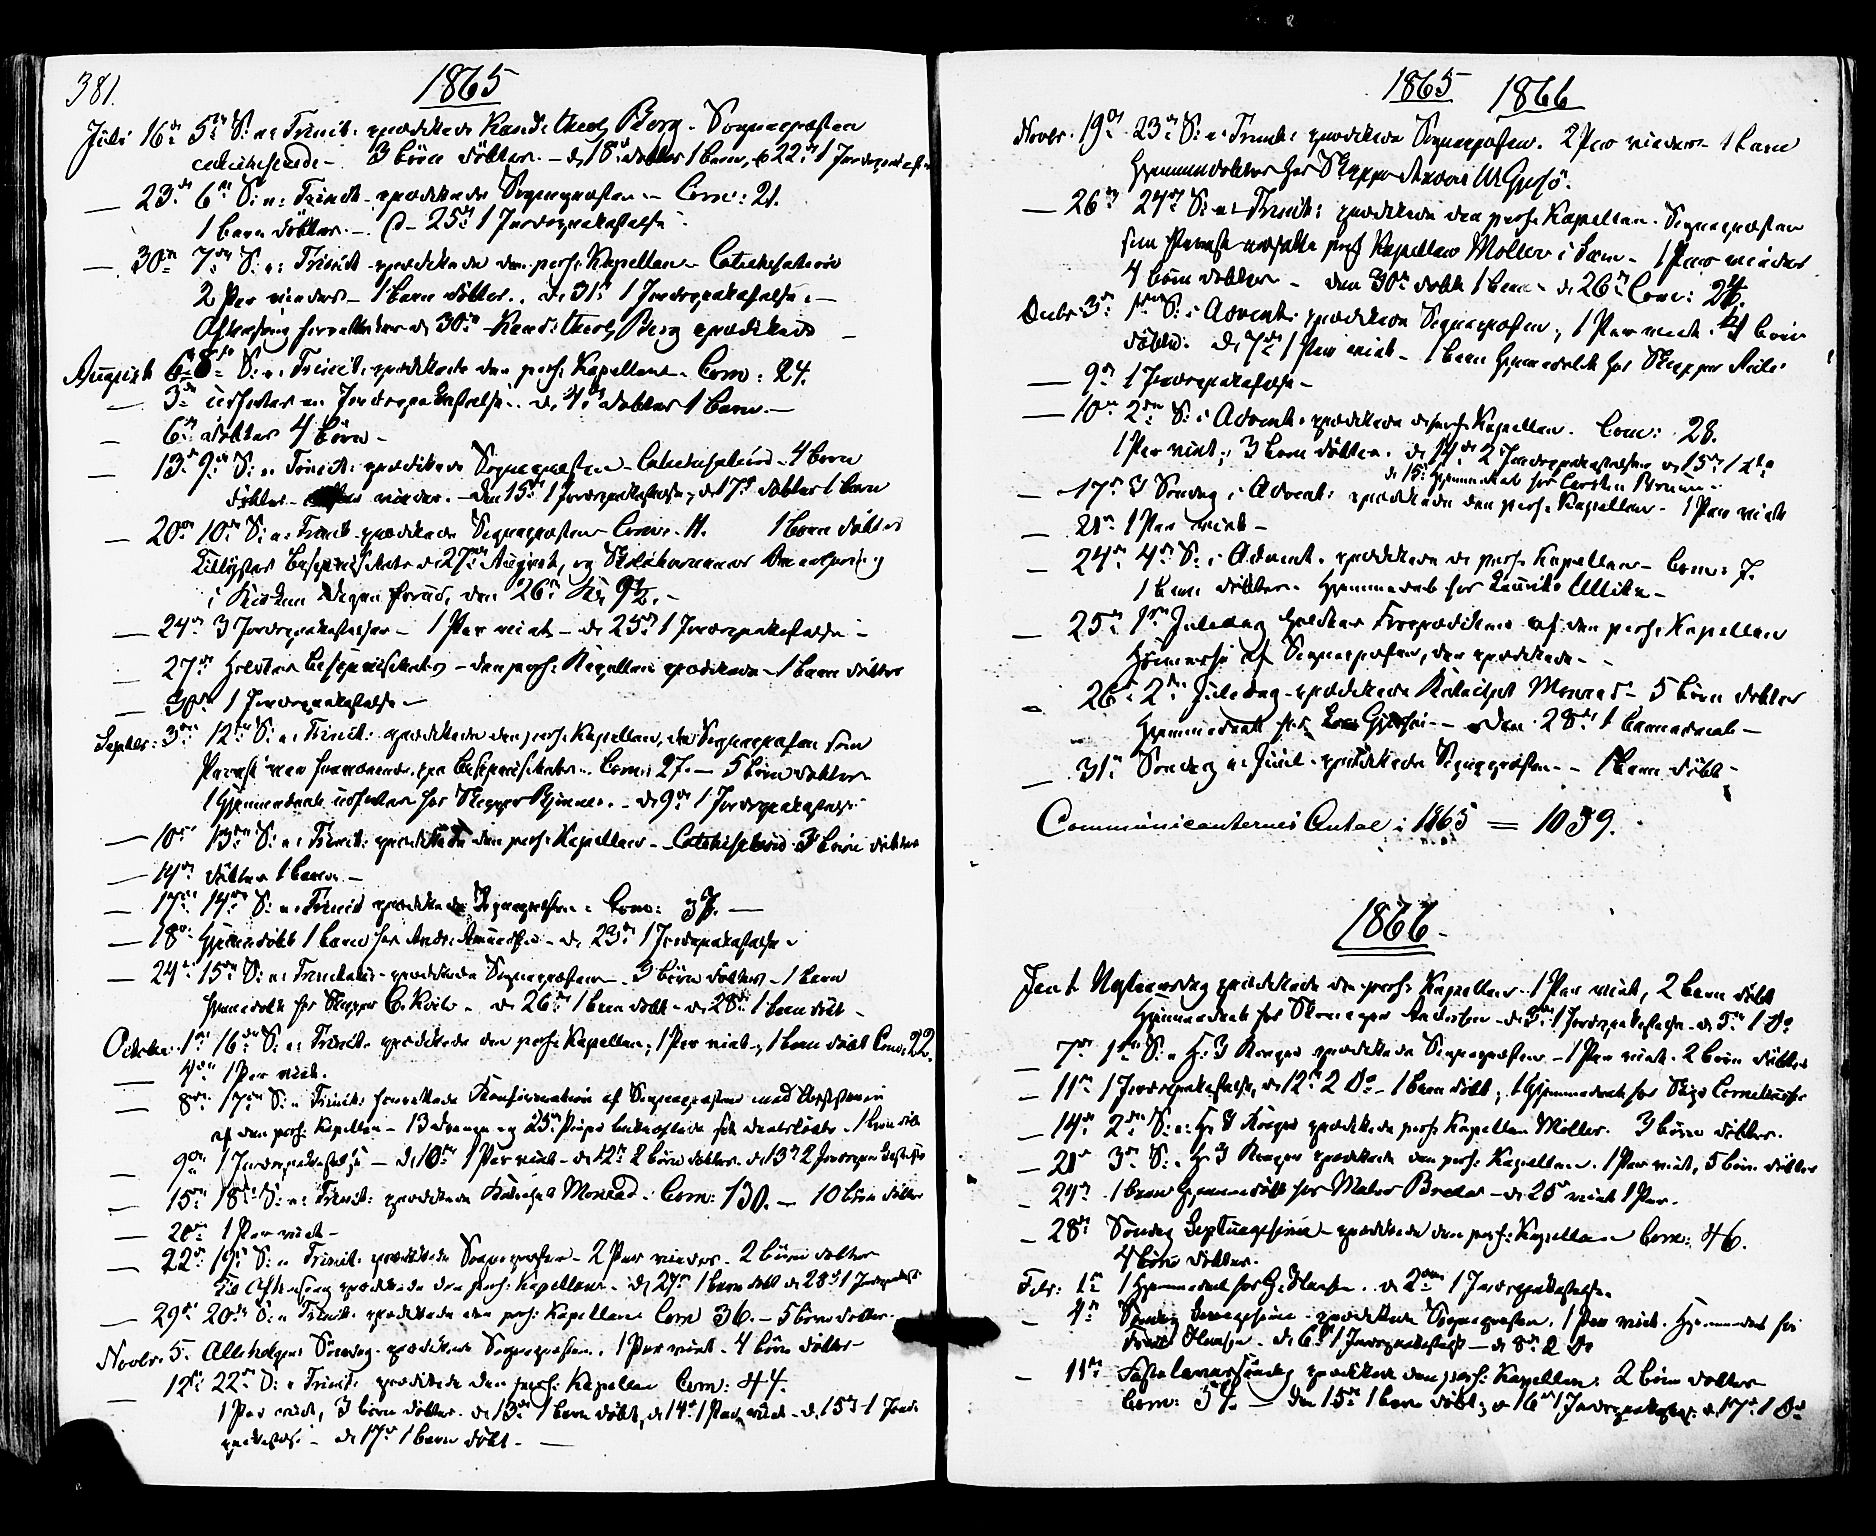 381.
1865
Juli 16de 5te S: e: Trinit: prædikede Kand: theol: Berg. Sognepræsten
catechiserede – 3 børn døbtes – d. 18de døbtes 1 barn, d. 22de 1 Jordpaakastelse
— 23de 6te S: e: Trinit: prædikede Sognepræsten – Com: 21.
1 barn døbtes – d. 25de 1 Jordpaakastelse
— 30te 7de S: e: Trinit: prædikede den pers: Kapellan – Catechisation
2 Par viedes – 1 barn døbtes. d. 31te 1 Jordpaakastelse –
Aftensang forrettedes d. 30te – Kand: theol: Berg prædikede –
August 6te 8de S: e: Trinit: prædikede den pers: Kapellan – Com: 24.
— 3de udførtes en Jordpaakastelse. d. 4de døbtes 1 barn –
— 6te døbtes 4 børn –
— 13de 9de S: e: Trinit: prædikede Sognepræsten – Catechisation – 4 børn
døbtes – viedes. – den 15de 1 Jordpaakastelse, d. 17de døbtes 1 barn
— 20de 10de S: e: Trinit: prædikede Sognepræsten Com: 11. 1 barn døbtes
Tillystes Bispevisitats d. 27de August, og
i Kirken Dagen forud, den 26de Kl. 9½. –
— 24de 3 Jordpaakastelser – 1 Par viet – d. 25de 1 Jordpaakastelse –
— 27de holdtes Bispevisitats – den pers: Kapellan prædikede – 1 barn døbtes
— 30te 1 Jordpaakastelse –
Septbr: 3de 12te S: e: Trinit: prædikede den pers: Kapellan, da Sognepræsten som
Provst var fraværende paa Bispevisitats. Com: 27. – 5 børn døbtes
1 Hjemmedaab udførtes hos Skipper – d. 9de 1 Jordpaakastelse
— 10de 13de S: e: Trinit: prædikede den pers: Kapellan – Catechisation 3 børn døbtes
— 14de døbtes 1 barn –
— 17de 14de S: e: Trinit: prædikede Sognepræsten – Com: 37. —
— 18de hjemmedøbt 1 barn hos – d. 23de 1 Jordpaakastelse –
— 24de 15de S: e: Trinitatis – prædikede Sognepræsten – 3 børn døbtes – 1 barn
hjemmedøbt hos Skipper – d. 26de 1 barn døbt – d. 28de 1 barn døbt –
October 1ste 16de S: e: Trinit: prædikede den pers: Kapellan; 1 Par viet; 1 barn døbt Com: 22.
— 4de 1 Par viet.
— 8de 17de S: e: Trinit: forrettede Konfirmation af Sognepræsten med Assistance
af den pers: Kapellan – 13 Drenge og 25 Piger bekræftede sin Daabspagt – 1 barn døbt
— 9de 1 Jordpaakastelse – d. 10de 1 Par viet – d. 12te 2 børn døbtes. d. 13de 2 Jordpaakastelser
— 15de 18de S: e: Trinit: prædikede Katechet Monrad. Com: 130. – 10 børn døbte
— 20de 1 Par viet –
— 22de 19de S: e: Trinit: prædikede Sognepræsten – 2 Par viedes. 2 børn døbtes
Til Aftensang prædikede den pers: Kapellan – d. 27de 1 barn døbt d. 28de 1 Jordpaakast
— 29de 20de S: e: Trinit: prædikede den pers: Kapellan Com 36. – 5 børn døbtes.
Novbr. 5. Allehelgens Søndag prædikede Sognepræsten. 1 Par viet. 4 børn døbtes
— 12te 22de S: e: Trinit: prædikede den pers: Kapellan Com: 44.
1 Par viet, 3 børn døbtes. d. 13de 1 barn døbt, d. 14de 1 Par viet – d. 15de 1 Jord-
paakastelse – d. 17de 1 barn døbt – —
1865 1866
Novbr. 19de 23de S: e: Trinit: prædikede Sognepræsten. 2 Par viedes 1 barn
hjemmedøbtes hos Skipper
— 26de 24de S: e: Trinit: prædikede den pers: Kapellan. Sognepræsten
som Provst indsatte pers: Kapellan Møller i – 1 Par viedes
4 børn døbtes – den 30te døbt 1 barn – d. 26de Com: 26.
Decbr 3de 1ste S: i Advent: prædikede Sognepræsten; 1 Par viet. 4 børn
døbtes. d. 7de 1 Par viet – 1 barn hjemmedøbt hos Skipper
— 9de 1 Jordpaakastelse –
— 10de 2den S: i Advent: prædikede d. pers: Kapellan. Com: 28.
1 Par viet; 3 børn døbtes. d. 14de 2 Jordpaakastelser d. 15de 1 do
d. 15de hjemmedøbt hos Carsten
— 17de 3 Søndag i Advent: prædikede den pers: Kapellan – 1 Par viet
— 21de 1 Par viet –
— 24de 4de S: i Advent. prædikede d. pers: Kapellan – Com: 7.
1 barn døbtes – Hjemmedaab hos –
— 25de 1ste Juledag holdtes Froprædiken af den pers: Kapellan
Høimesse af Sognepræsten, der prædikede –
— 26de 2den Juledag – prædikede Katechet Monrad – 5 børn døbtes
Hjemmedaab hos – den 28de 1 barnedaab –
— 31te Søndag e: Juul – prædikede Sognepræsten – 1 barn døbt –
Communicanternes Antal i 1865 = 1039.
1866.
Jan 1. Nytaarsdag prædikede den pers: Kapellan. 1 Par viet, 2 børn døbt
Hjemmedaab hos Skomager Andersen – d. 3de 1 Jordpaakastelse – d. 5te 1 Do
— 7de 1ste S: e H: 3 Konger prædikede Sognepræsten – 1 Par viet. 2 børn døbtes
— 11te 1 Jordpaakastelse, d. 12te 2 Do – 1 barn døbt; 1 Hjemmedaab hos
— 14de 2den S: e: H: 3 Konger prædikede pers: Kapellan Møller. 3 børn døbtes.
— 21de 3de S: e H: 3 Konger prædikede den pers: Kapellan. 1 Par viet, 5 børn døbtes
— 24de 1 barn hjemmedøbt hos Maler – d. 25de viet 1 Par.
— 28de Søndag Septuagesima – prædikede den pers: Kapellan Com: 46.
4 børn døbtes.
Febr: 1ste 1 Hjemmedaab hos – d. 2den 1 Jordpaakastelse.
— 4de Søndag Sexagesima – prædikede Sognepræsten. 1 Par viet. Hjemmedaab hos
Olsen – d. 6te 1 Jordpaakastelse – d. 8de 2 Do
— 11te Fastelavnssøndag prædikede den pers: Kapellan: 2 børn døbtes
Com: 51. – den 15de 1 barn døbt; d. 16de 1 Jordpaakastelse: d. 17de 1 Do